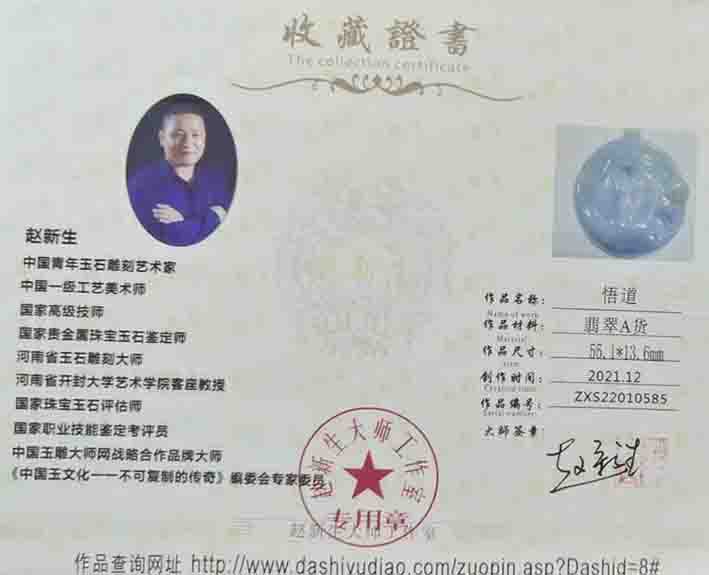 收藏證書
The collection certificate
赵新生
中国青年玉石雕刻艺术家
中国一级工艺美术师
国家高级技师
国家贵金属珠宝玉石鉴定师
河南省玉石雕刻大师
河南省开封大学艺术学院客座教授
国家珠宝玉石评估师
国家职业技能鉴定考评员
中国玉雕大师网战略合作品牌大师
《中国玉文化——不可复制的传奇》编委会专家委员
作品名称： 悟道
Name of work
作品材料： 翡翠A货
Material
作品尺寸： 55.1*13.6mm
创作时间： 2021.12
作品编号： ZXS22010585
Serial number:
大師签章：
赵新生
赵新生大师工作室
专用章
赵新生大师工作室
作品查询网址 http://www.dashiyudiao.com/zuopin.asp?Dashid=8#